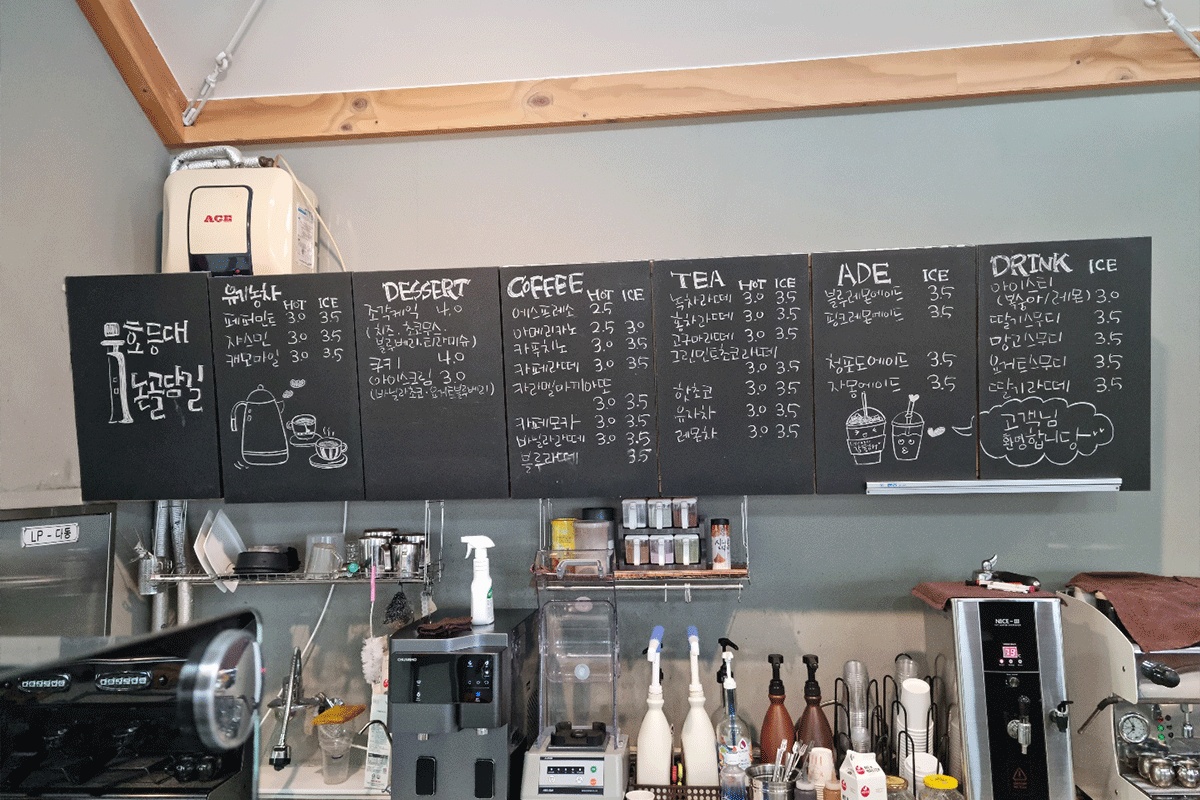 AGE
등대
논골담길
유기농차 HOT ICE
페퍼민트 3.0 3.5
쟈스민 3.0 3.5
캐모마일 3.0 3.5
DESSERT
조각케익 4.0
(치즈, 초코무스,
블루베리, 티라미슈)
쿠키 4.0
아이스크림 3.0
(바닐라/초코/요거트블루베리)
COFFEE HOT ICE
에스프레소 2.5
아메리카노 2.5 3.0
카푸치노 3.0 3.5
카페라떼 3.0 3.5
카라멜마끼아또
3.0 3.5
카페모카 3.0 3.5
바닐라라떼 3.0 3.5
블루라떼 3.5
TEA HOT ICE
녹차라떼 3.0 3.5
홍차라떼 3.0 3.5
고구마라떼 3.0 3.5
그린민트초코라떼
3.0 3.5
핫초코 3.0 3.5
유자차 3.0 3.5
레몬차 3.0 3.5
ADE ICE
블루레몬에이드 3.5
핑크레몬에이드 3.5
청포도에이드 3.5
자몽에이드 3.5
DRINK ICE
아이스티
(복숭아/레몬) 3.0
딸기스무디 3.5
망고스무디 3.5
요거트스무디 3.5
딸기라떼 3.5
고객님
환영합니다~
LP-다동
NICE-III